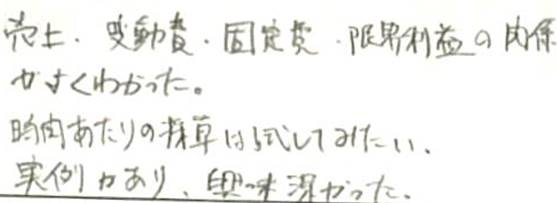 売上・変動費・固定費・限界利益の関係
がよくわかった。
時間あたりの採算は試してみたい。
実例があり、興味深かった。